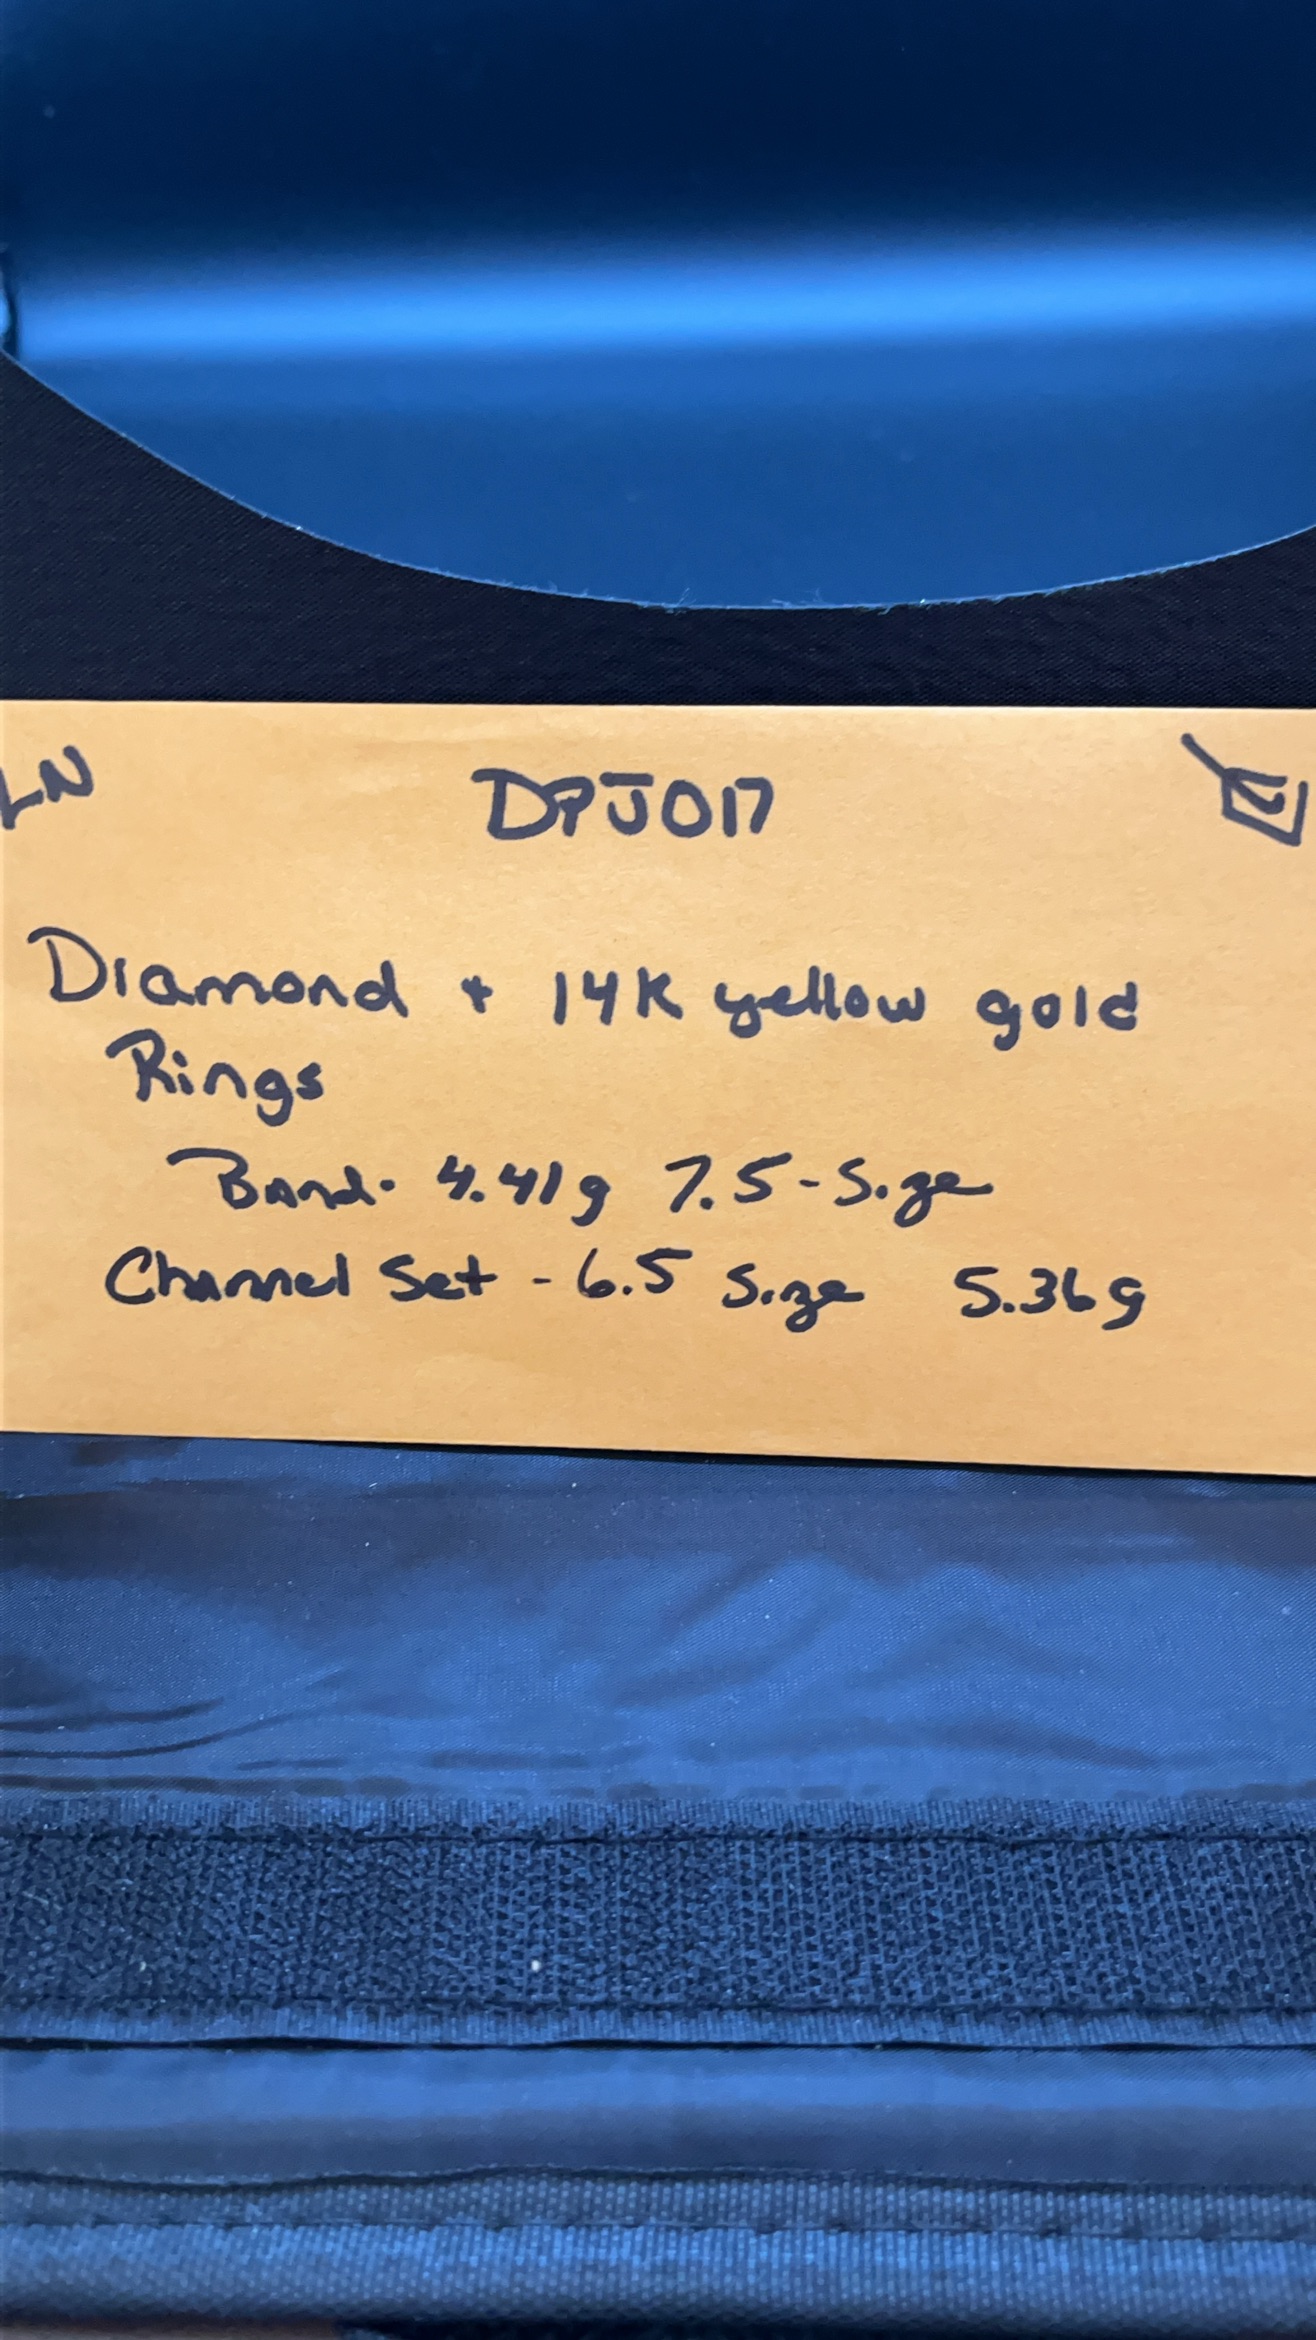 LN DPJ017
Diamond + 14K yellow gold
Rings
Band- 4.41g 7.5-Size
Channel Set - 6.5 Size 5.36g